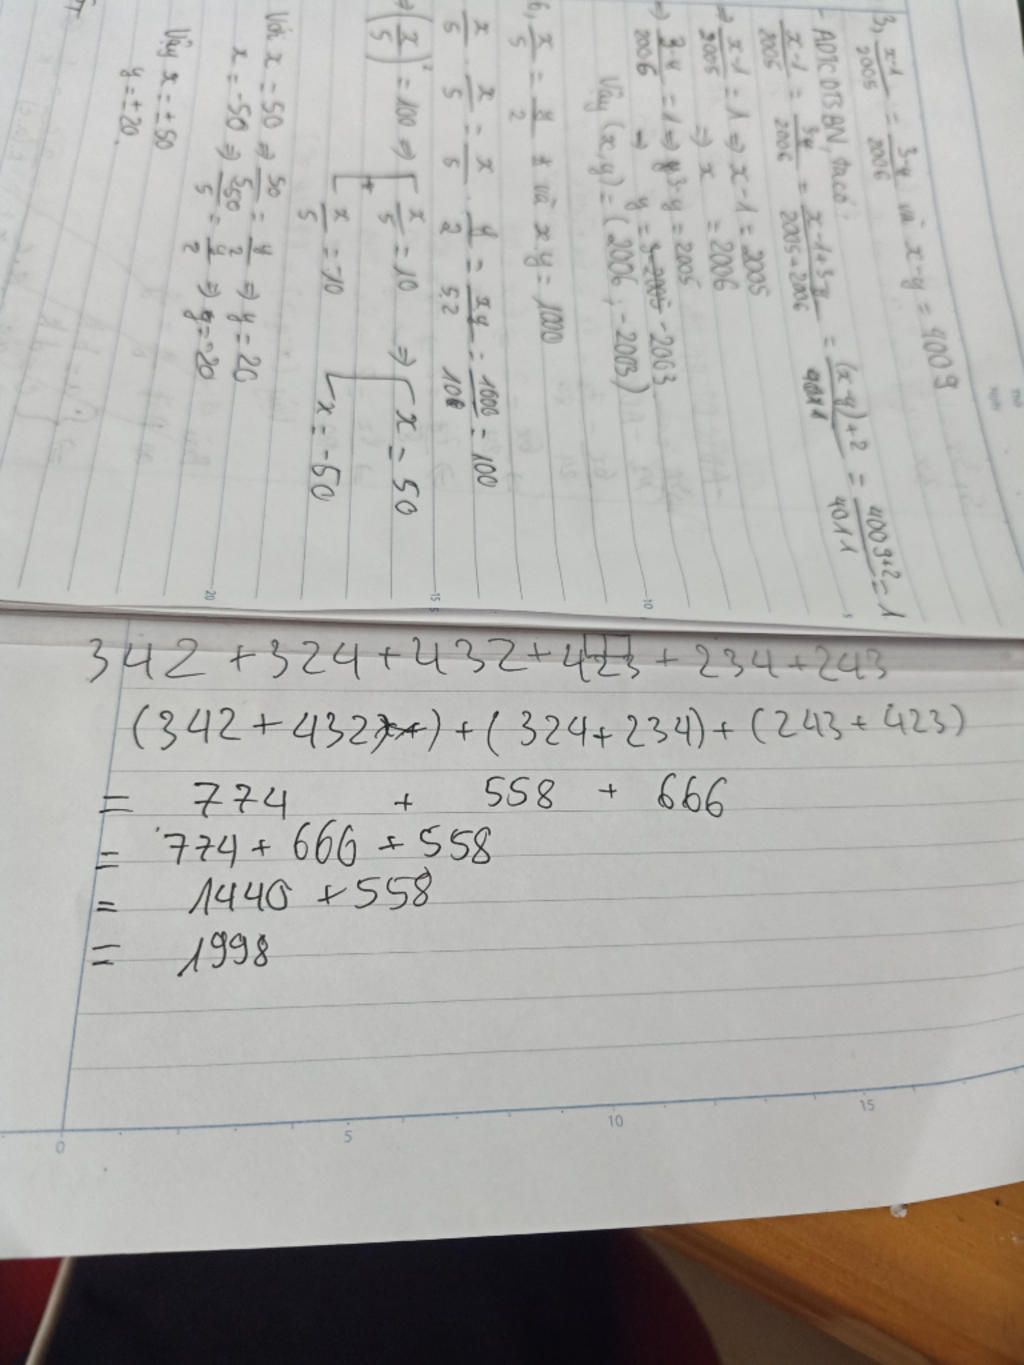 3, x-1/2005 = 3-y/2006 và x-y = 4009
- ADTCDTSBN, ta có:
x-1/2005 = 3-y/2006 = x-1+3-y/2005+2006 = (x-y)+2/4011 = 4009+2/4011 = 1
⇒ x-1/2005 = 1 ⇒ x-1 = 2005
⇒ x = 2006
⇒ 3-y/2006 = 1 ⇒ 3-y = 2006
⇒ y = -2003
Vậy (x,y) = (2006; -2003)
6, x/5 = y/2 và x.y = 1000
x/5 . x/5 = x/5 . y/2 = xy/5.2 = 1000/10 = 100
⇒ (x/5)² = 100 ⇒ [ x/5 = 10 ⇒ [ x = 50
x/5 = -10 [ x = -50
Với x = 50 ⇒ 50/5 = y/2 ⇒ y = 20
x = -50 ⇒ -50/5 = y/2 ⇒ y = -20
Vậy x = ±50
y = ±20.
342 + 324 + 432 + 423 + 234 + 243
(342 + 432) + (324 + 234) + (243 + 423)
= 774 + 558 + 666
= 774 + 666 + 558
= 1440 + 558
= 1998
0 5 10 15